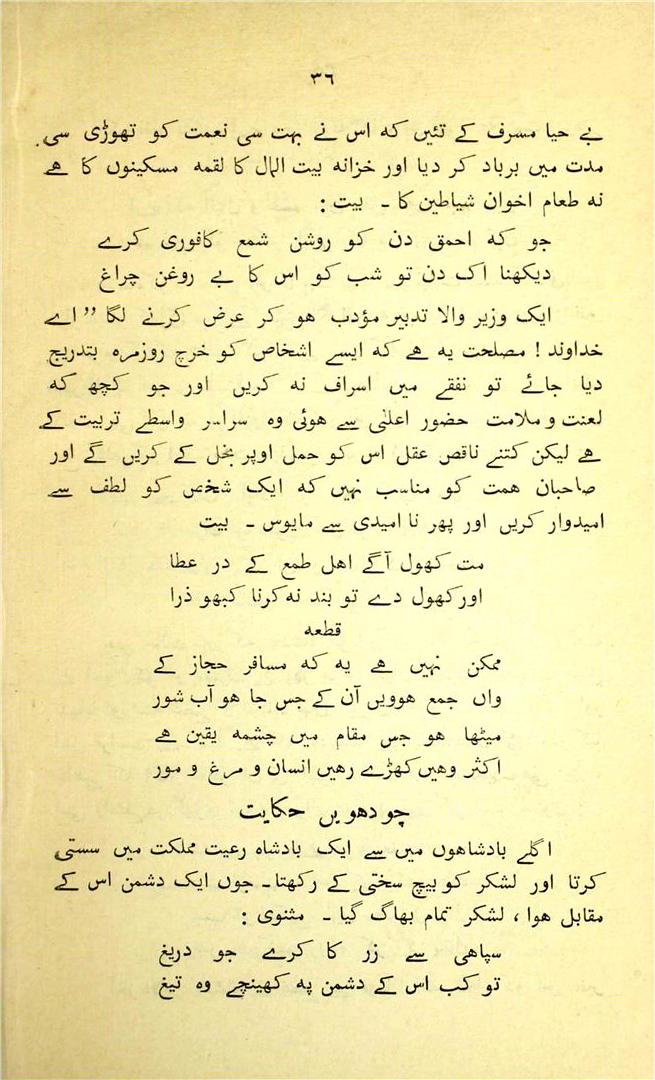 ۳۶
بے حیا مسرف کے تئیں کہ اس نے بہت سی نعمت کو تھوڑی سی
مدت میں برباد کر دیا اور خزانہ بیت المال کا لقمہ مسکینوں کا ہے
نہ طعام اخوان شیاطین کا ۔ بیت :
جو کہ احمق دن کو روشن شمع کافوری کرے
دیکھنا اک دن تو شب کو اس کا بے روغن چراغ
ایک وزیر والا تدبیر مؤدب ہو کر عرض کرنے لگا ”اے
خداوند ! مصلحت یہ ہے کہ ایسے اشخاص کو خرچ روزمرہ بتدریج
دیا جائے تو نفقے میں اسراف نہ کریں اور جو کچھ کہ
لعنت و ملامت حضور اعلیٰ سے ہوئی وہ سراسر واسطے تربیت کے
ہے لیکن کتنے ناقص عقل اس کو حمل اوپر بخل کے کریں گے اور
صاحبان ہمت کو مناسب نہیں کہ ایک شخص کو لطف سے
امیدوار کریں اور پھر نا امیدی سے مایوس ۔ بیت
مت کھول آگے اہل طمع کے در عطا
اور کھول دے تو بند نہ کرنا کبھو ذرا
قطعہ
ممکن نہیں ہے یہ کہ مسافر حجاز کے
واں جمع ہوویں آن کے جس جا ہو آب شور
میٹھا ہو جس مقام میں چشمہ یقین ہے
اکثر وہیں کھڑے رہیں انسان و مرغ و مور
چودھویں حکایت
اگلے بادشاہوں میں سے ایک بادشاہ رعیت مملکت میں سستی
کرتا اور لشکر کو بیچ سختی کے رکھتا ۔ جوں ایک دشمن اس کے
مقابل ہوا ، لشکر تمام بھاگ گیا ۔ مثنوی :
سپاہی سے زر کا کرے جو دریغ
تو کب اس کے دشمن پہ کھینچے وہ تیغ